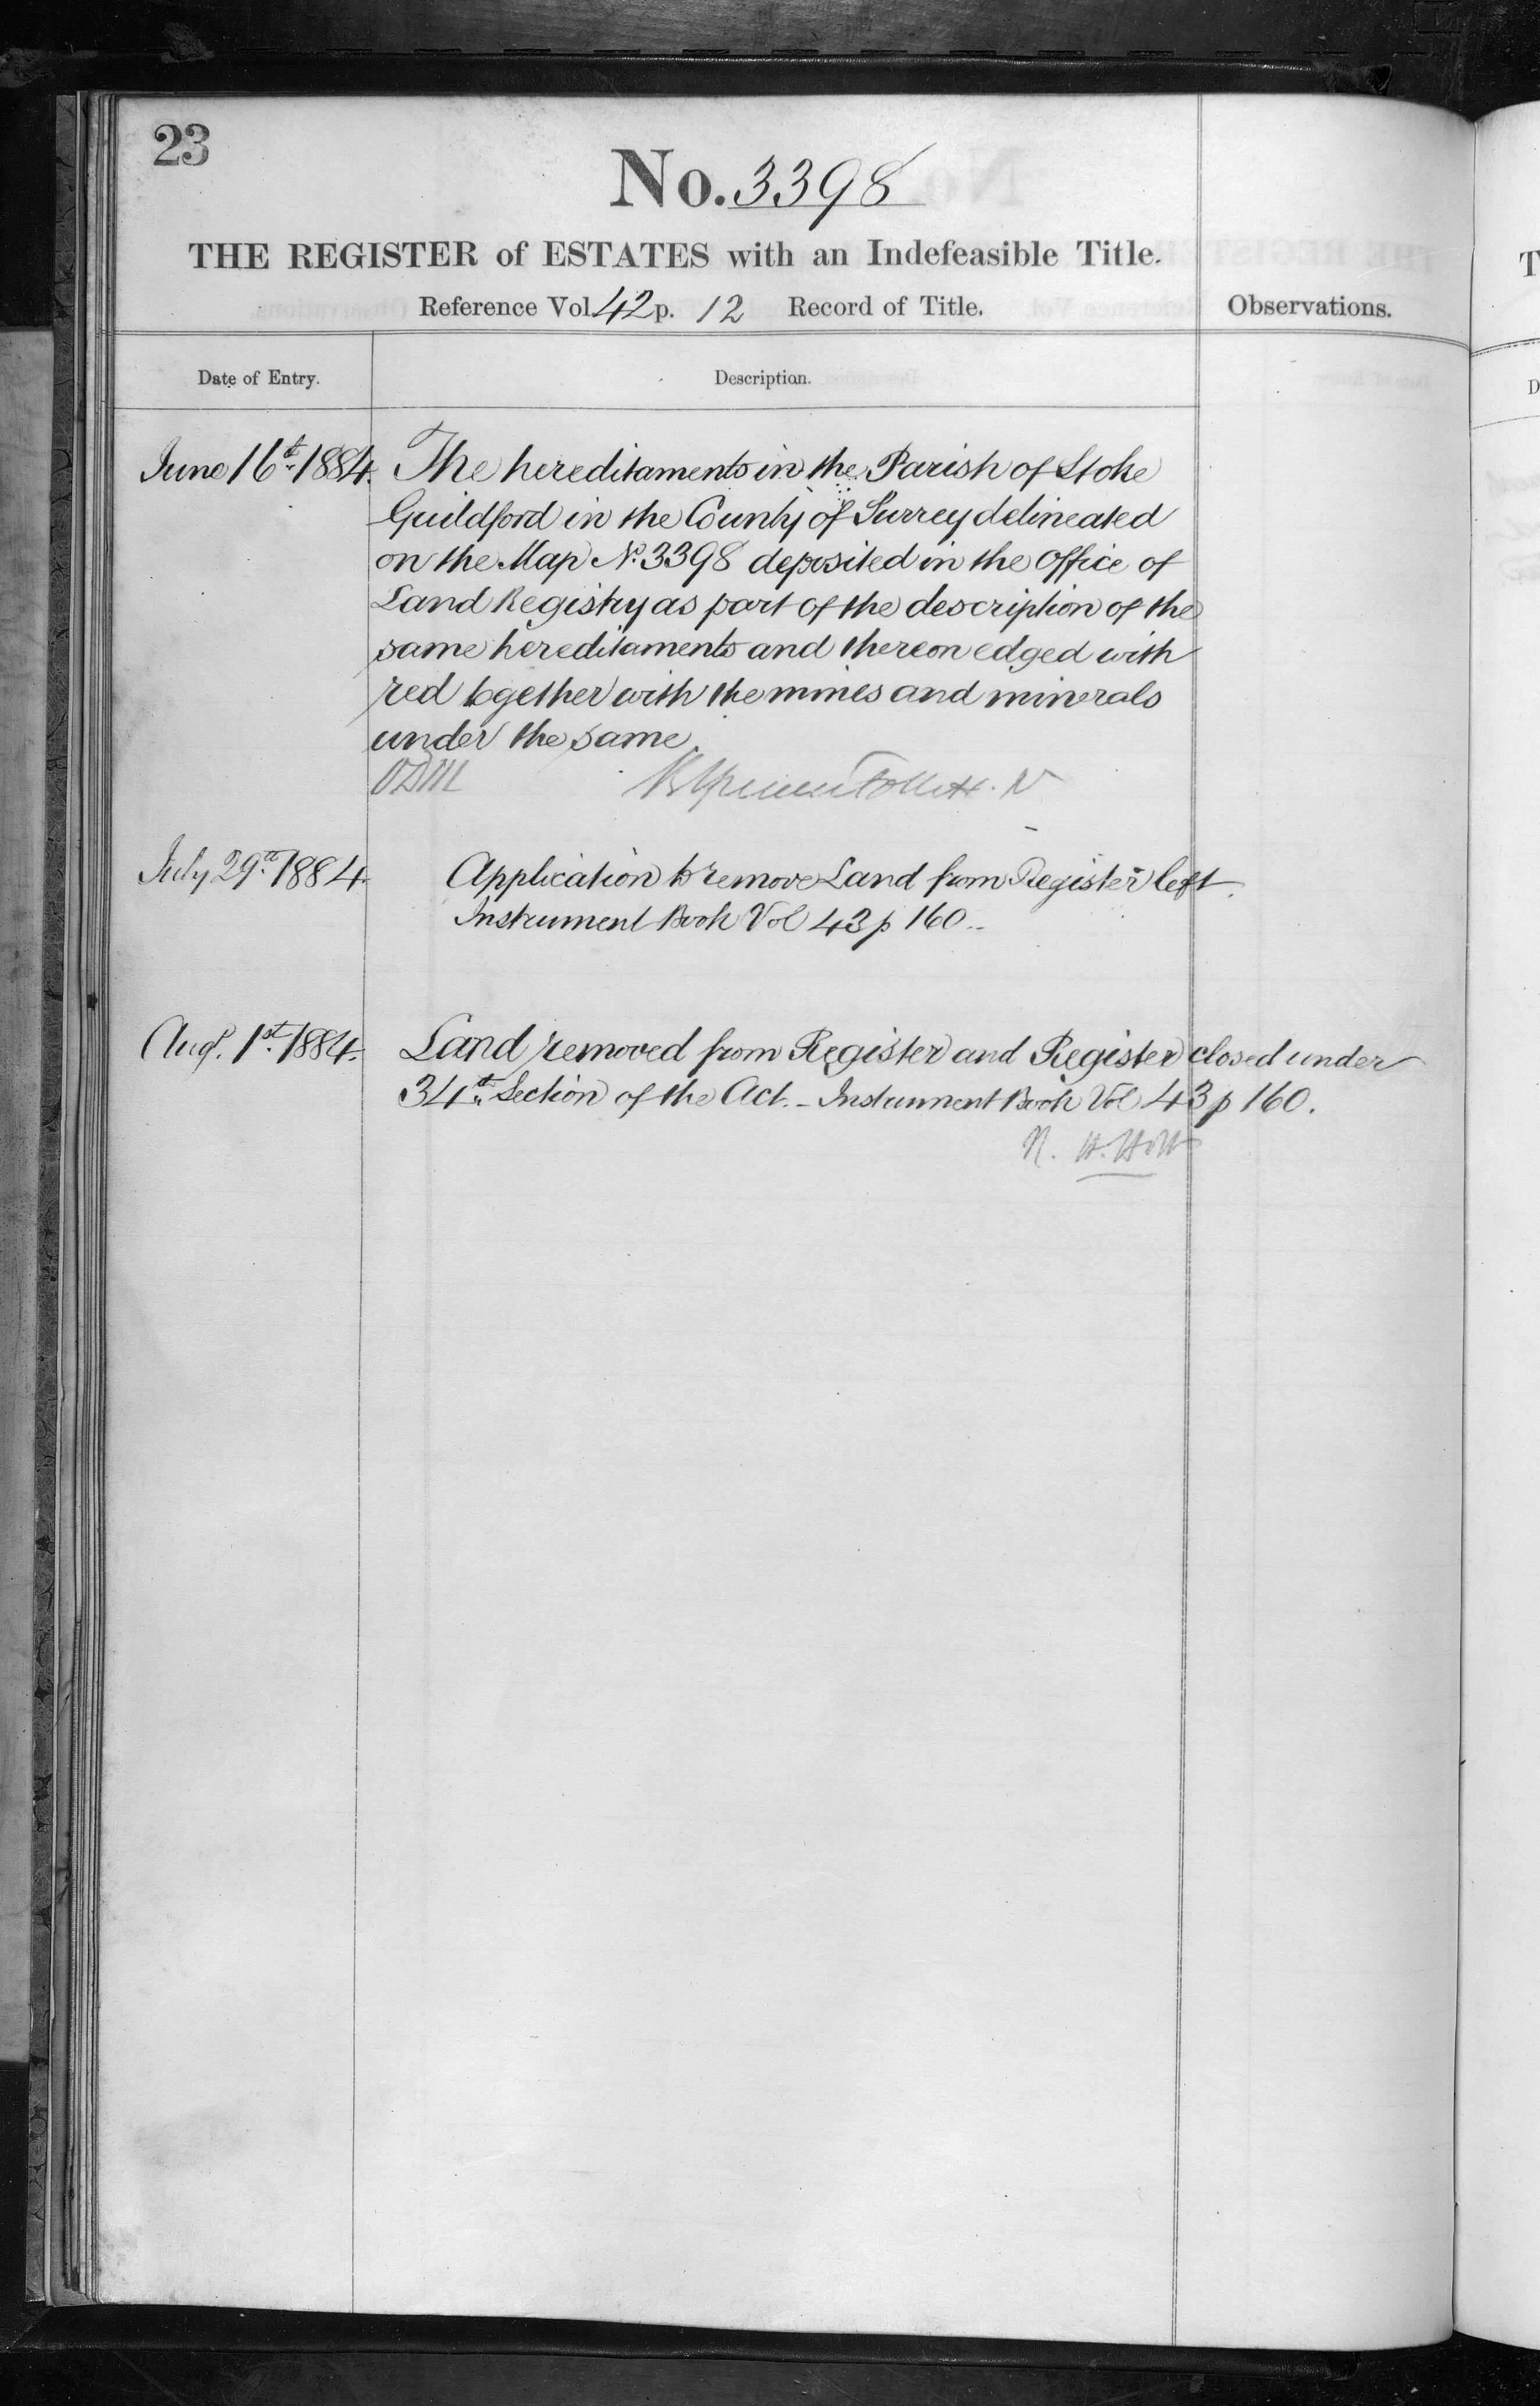 23
No. 3398
THE REGISTER of ESTATES with an Indefeasible Title.
Reference Vol. 42 p. 12 Record of Title.
Observations.
Date of Entry.
Description.
June 16th 1884. The hereditaments in the Parish of Stoke
Guildford in the County of Surrey delineated
on the Map No. 3398 deposited in the Office of
Land Registry as part of the description of the
same hereditaments and thereon edged with
red together with the mines and minerals
under the same.
July 29th 1884. Application to remove Land from Register left.
Instrument Book Vol 43 p 160.
Augt. 1st 1884. Land removed from Register and Register closed under
34th Section of the Act. - Instrument Book Vol 43 p 160.